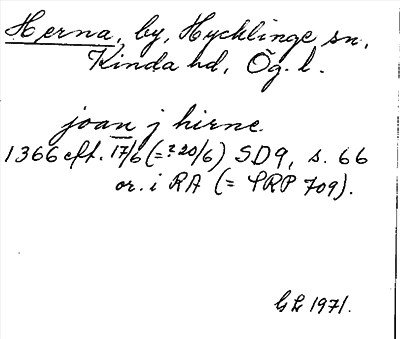 Herna, by, Hycklinge sn,
Kinda hd, Ög. l.
joan j hirne.
1366 eft. 17/6 (=? 20/6) SD9, s. 66
or. i RA (= SRP 709).
GL 1971.